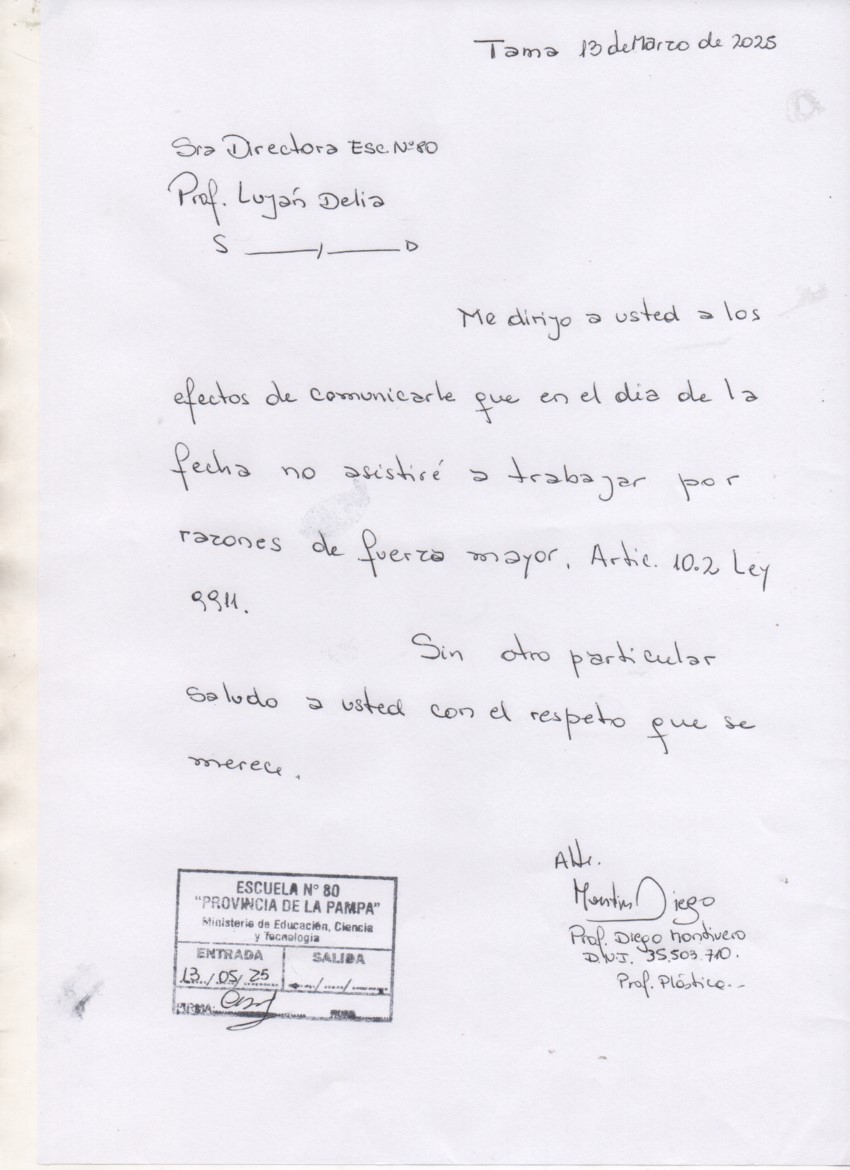 Tama 13 de Marzo de 2025
Sra Directora Esc. Nº 80
Prof. Luján Delia
S ____/____ D
Me dirijo a usted a los
efectos de comunicarle que en el dia de la
fecha no asistiré a trabajar por
razones de fuerza mayor. Artic. 10.2 Ley
9911.
Sin otro particular
saludo a usted con el respeto que se
merece.
Atte.
Diego
Prof. Diego Montivero
D.N.I. 35.503.710.
Prof. Plástica.-
ESCUELA Nº 80
"PROVINCIA DE LA PAMPA"
Ministerio de Educación, Ciencia
y Tecnología
ENTRADA SALIDA
13/05/25 .../.../...
FIRMA: